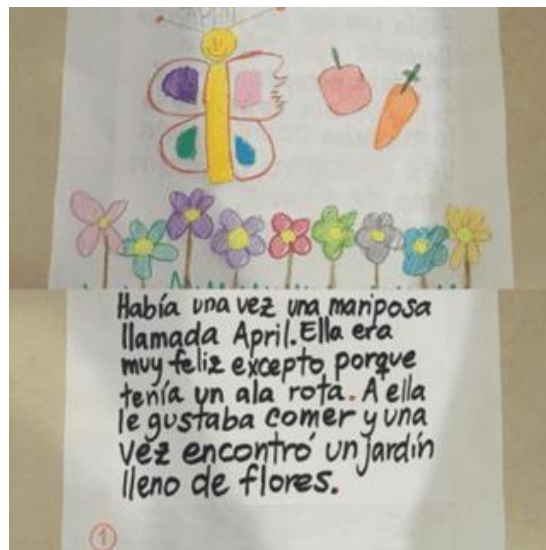 Había una vez una mariposa
llamada April. Ella era
muy feliz excepto porque
tenía un ala rota. A ella
le gustaba comer y una
vez encontró un jardín
lleno de flores.
1